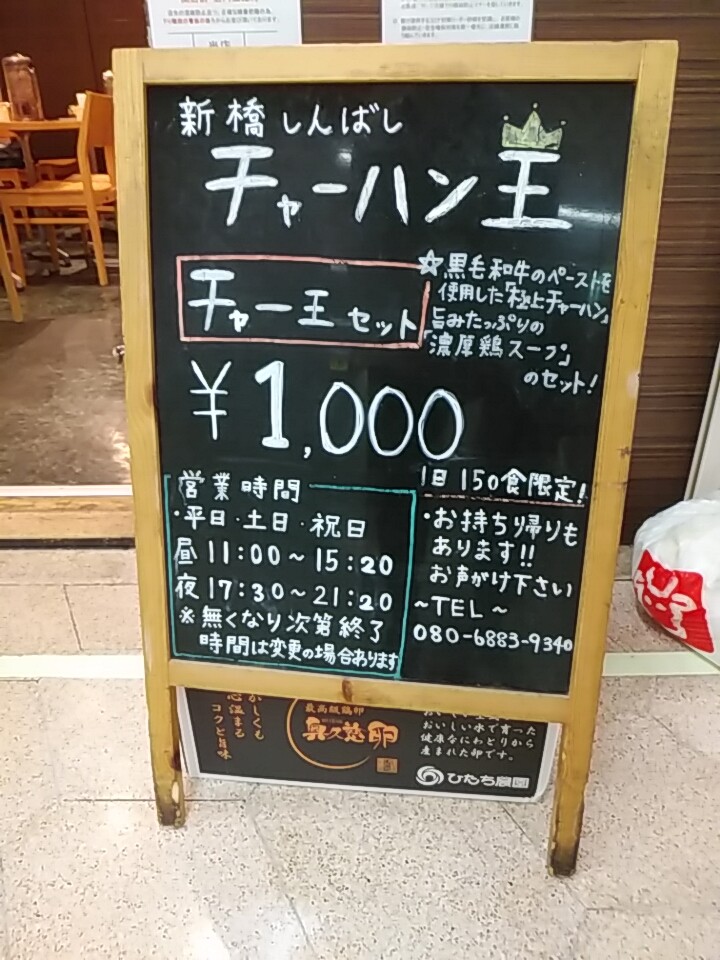 新橋 しんばし
チャーハン王
チャー王 セット
☆黒毛和牛のペーストを
使用した「極上チャーハン」
旨みたっぷりの
「濃厚鶏スープ」
のセット!
¥1,000
1日 150食限定!
営業時間
・平日・土日・祝日
昼 11:00～15:20
夜 17:30～21:20
※無くなり次第終了
時間は変更の場合あります
・お持ち帰りも
あります!!
お声がけ下さい
～TEL～
080-6883-9340
コクと旨味
最高級鶏卵
奥久慈卵
おいしい水で育った
健康なにわとりから
産まれた卵です。
ひたち農園